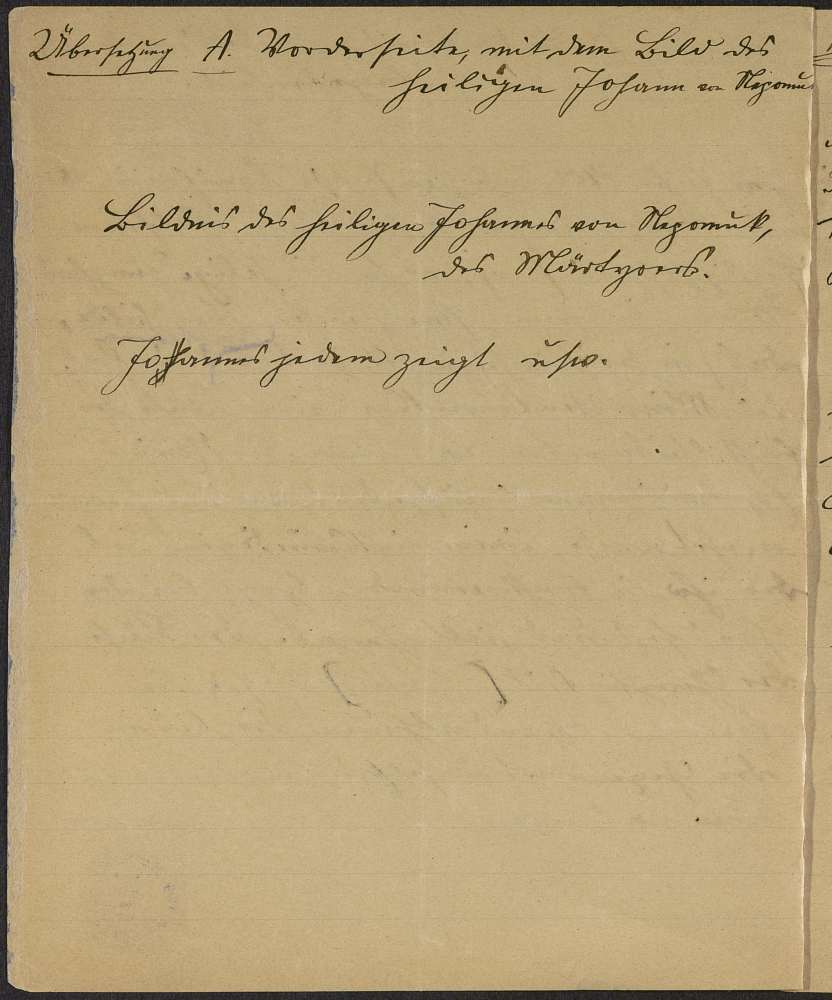 Übersetzung A. Vorderseite, mit dem Bild des
heiligen Johann von Nepomu
Bildnis des heiligen Johannes von Nepomuk,
des Märtyrers.
Johannes jedem zeigt usw.